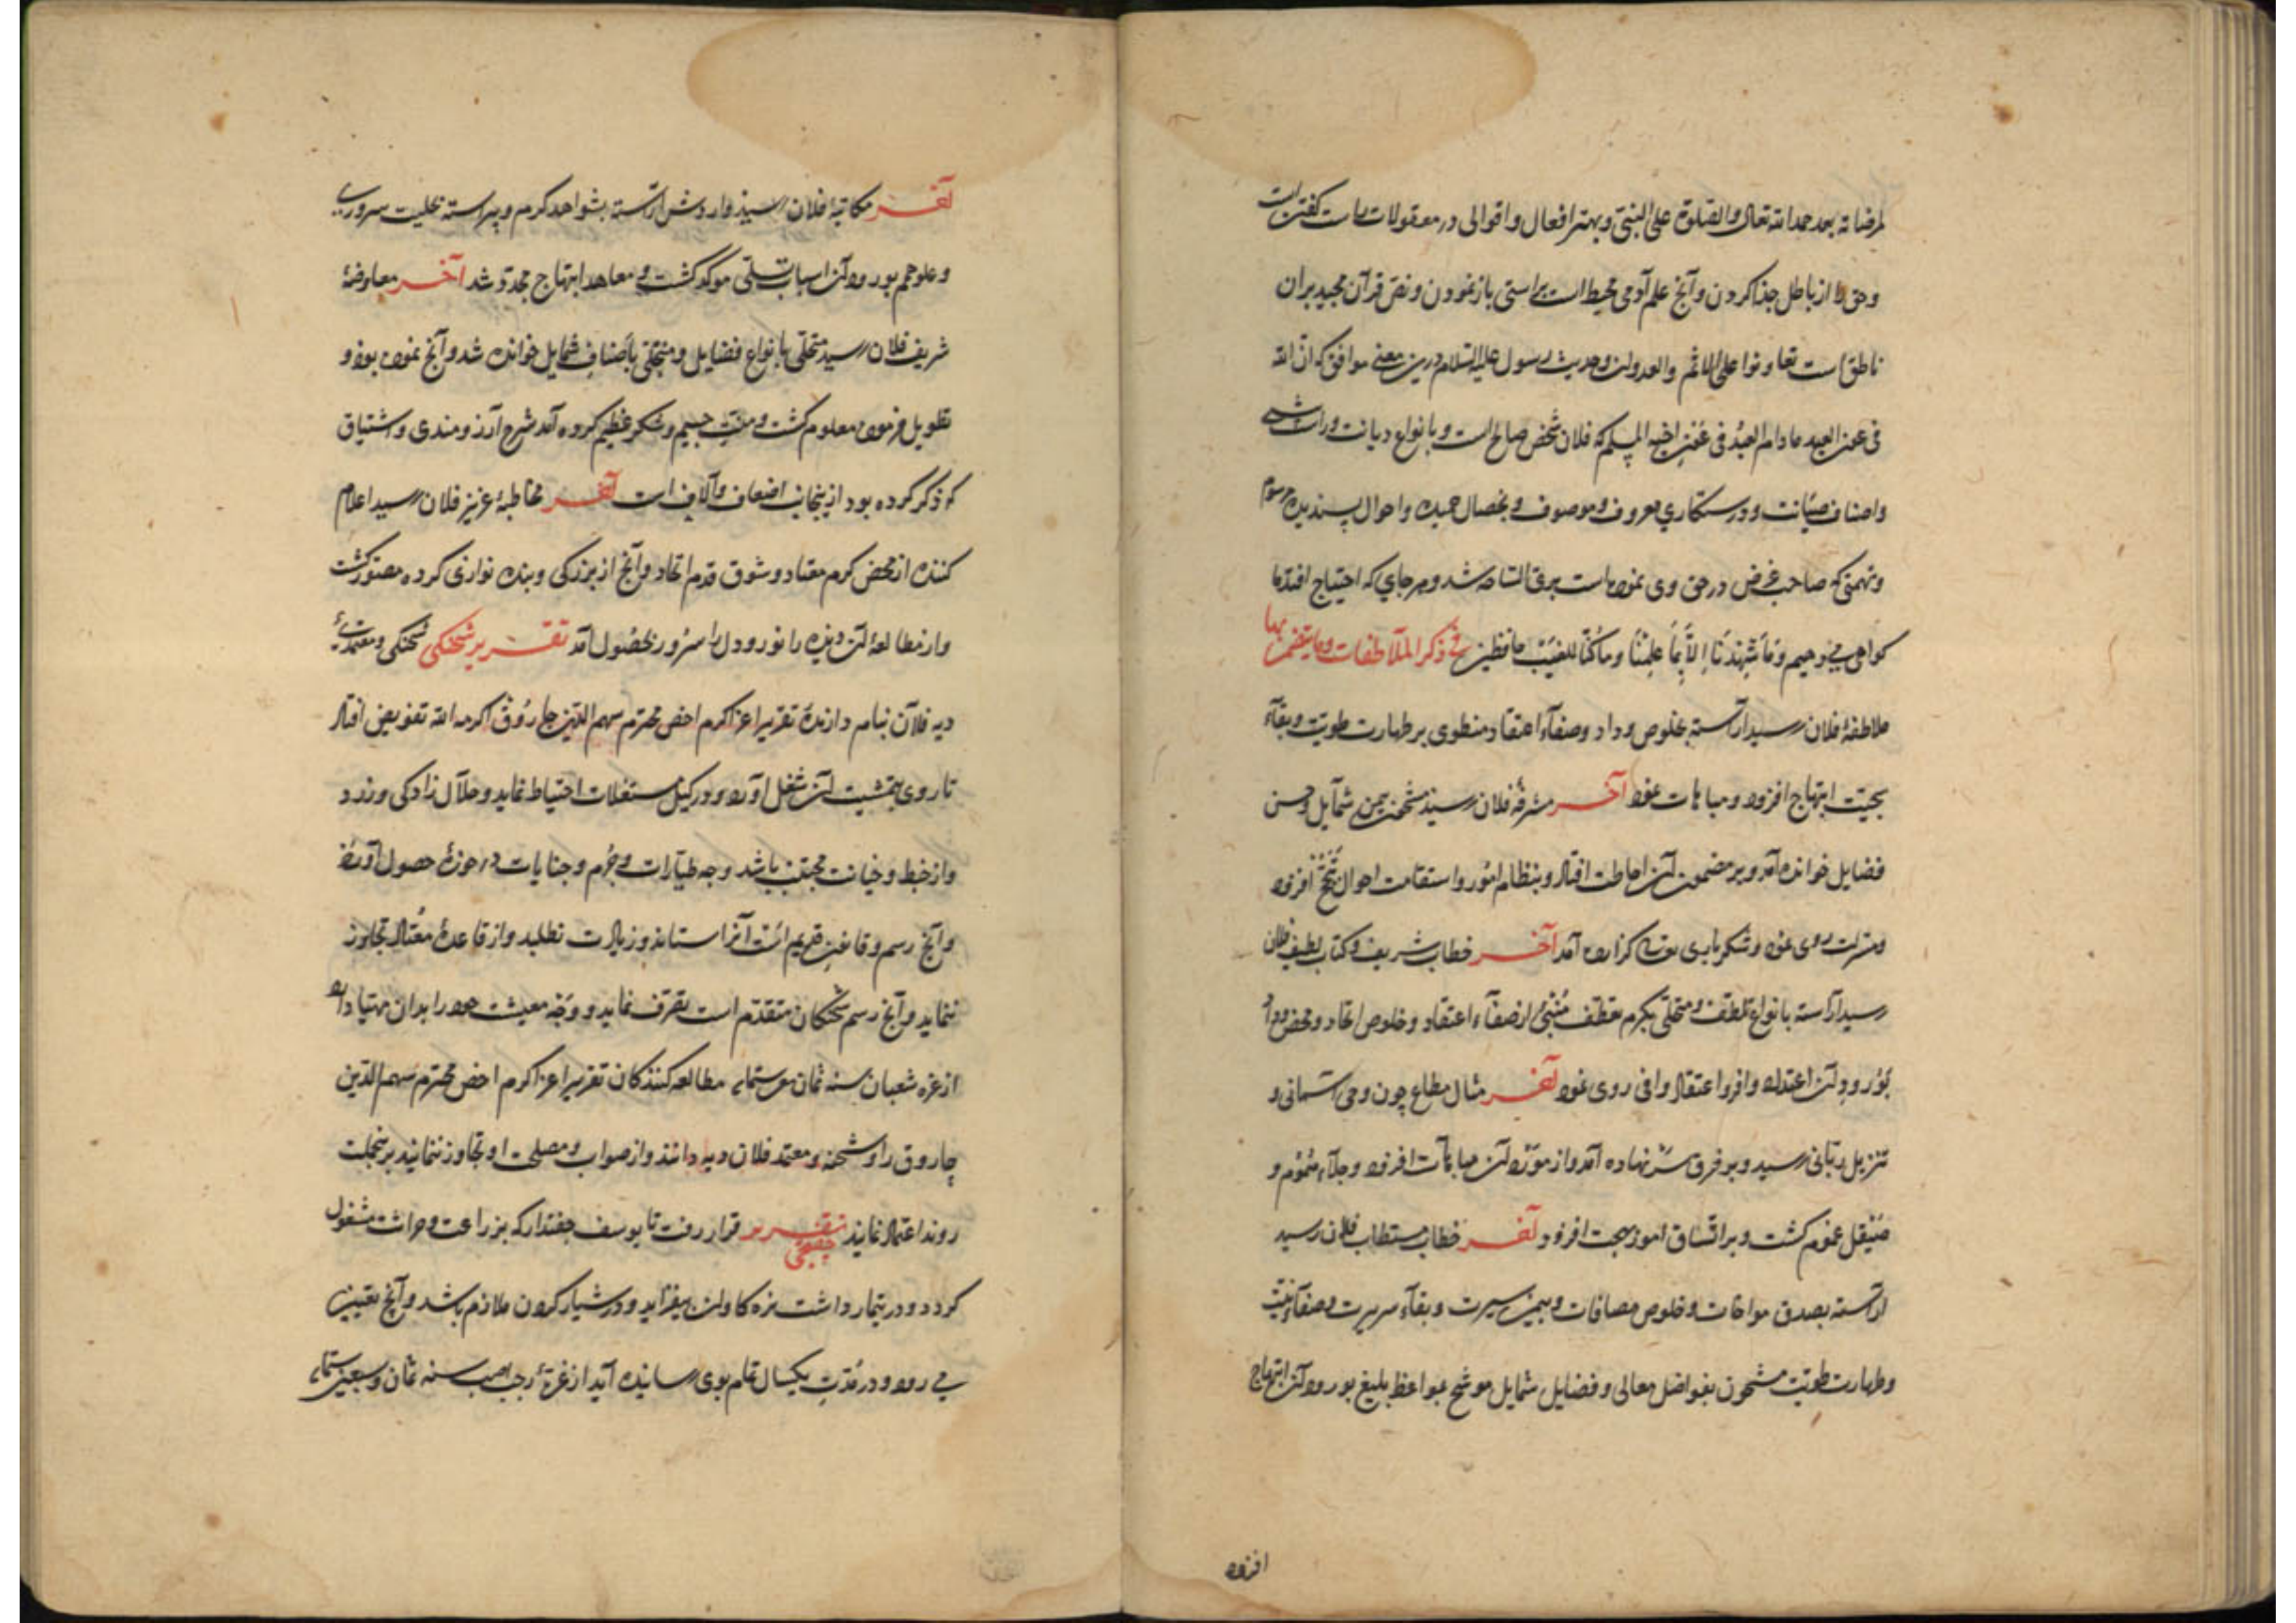 لمرضاته بعد حمد الله تعالی والصلوة علی النبی و بهتر افعال و اقوالی در معقولات راست گفتن است
و حق را از باطل جدا کردن و آنچ علم آدمی محیط است براستی باز نمودن و نص قرآن مجید بران
ناطق است تعاونوا علی الاثم والعدوان و حدیث رسول علیه السلام درین معنی موافق که ان الله
فی عون العبد مادام العبد فی عون اخیه المسلم که فلان شخص صالح است و بانواع دیانت و
واصناف صیانت و رستگاری معروف و موصوف و بخصال حمیده و احوال پسندیده موسوم
و تهمتی که صاحب غرض در حق وی نموده است شد و هر جای که احتیاج افتد ما
گواهی می دهیم وما شهدنا الا بما علمنا وما کنا للغیب حافظین فی ذکر الملاطفات وما یتضمن بها
ملاطفهٔ فلان رسید آراسته بخلوص وداد وصفاء اعتقاد منطوی بر طهارت طویت و بقاء
ابتهاج افزود و مباهات نمود آخر مشرفهٔ فلان رسید مشحون بیمن شمایل و حسن
فضایل خوانده آمد و بر مضمون آن احاطت افتاد و بنظام امور و استقامت احوال افزود
و مسرت روی نمود و شکر باری گزارده آمد آخر خطاب شریف و کتاب لطیف فلان
رسید آراسته بانواع تلطف و متحلی بکرم تعطف منبئ از صفاء اعتقاد و خلوص اتحاد و محض وداد
بورود آن اعتداد وافر و اعتقاد وافی روی نمود آخر مثال مطاع چون وحی آسمانی و
تنزیل ربانی رسید و بر فرق سر نهاده آمد و از مورد آن مباهات افزود و جلاء هموم و
صیقل غموم گشت و بر اتساق امور بهجت افزود آخر خطاب مستطاب فلان رسید
آراسته بصدق مواخات و خلوص مصافات و بیمن سیرت و بقاء سریرت و صفاء نیت
و طهارت طویت مشحون بفواضل معالی و فضایل شمایل موشح بمواعظ بلیغ بورود آن ابتهاج
افزود
آخر مکاتبهٔ فلان رسید آراسته بشواهد کرم و پیراسته بحلیت سروری
و علو همم بورود آن اسباب تسلی موکد گشت و معاهد ابتهاج مجدد شد آخر معاوضهٔ
شریف فلان رسید متحلی بانواع فضایل و متجلی باصناف شمایل خوانده شد و آنچ نموده بود و
تطویل فرموده معلوم گشت و منت جسیم و شکر عظیم کرده آمد شرح آرزومندی و اشتیاق
که ذکر کرده بود ازینجانب اضعاف و آلاف است آخر مخاطبهٔ عزیز فلان رسید اعلام
کننده از محض کرم معتاد و شوق قدم اتحاد و آنچ از بزرگی و بنده نوازی کرده مصور گشت
و از مطالعهٔ آن دیده را نور و دل را سرور بحصول آمد تقریر شحنگی شحنگی و معتمدی
دیه فلان بنام دارندهٔ تقریر اعز اکرم اخص محترم سهم الدین چاروق اکرمه الله تفویض افتاد
تا روی بتمشیت آن شغل آورد و در کیل مستغلات احتیاط نماید و حلال زادگی ورزد
و از خبط و خیانت مجتنب باشد وجه طیارات و جرم و جنایات در حوزهٔ حصول آورد
و آنچ رسم و قانون قدیم است آنرا ستاند و زیادت نطلبد و از قاعدهٔ معتاد تجاوز
ننماید و آنچ رسم شحنگان متقدم است تصرف نماید و وجه معیشت خود را بدان مهیا دارد
از غره شعبان سنه ثمان ستمایه مطالعه کنندگان تقریر اعز اکرم اخص محترم سهم الدین
چاروق را شحنه و معتمد فلان دیه دانند و از صواب و مصلحت او تجاوز ننمایند برینجملت
روند اعتماد نمایند تقریر جفتجی قرار رفت تا یوسف جفتدار که بزراعت و حراثت مشغول
گردد و در تیمار داشت نزه گاوان بیفزاید و در شیار کردن ملازم باشد و آنچ تعیین
می رود و در مدت یکسال تمام بوی رسانیده آید از غرهٔ رجب سنه ثمان و سبعین ستمایه